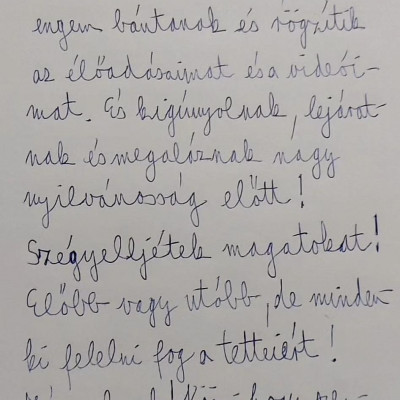 engem bántanak és rögzítik
az előadásaimat és a videói-
mat. És kigúnyolnak, lejárat-
nak és megaláznak nagy
nyilvánosság előtt!
Szégyelljétek magatokat!
Előbb vagy utóbb, de minden
ki felelni fog a tetteiért!